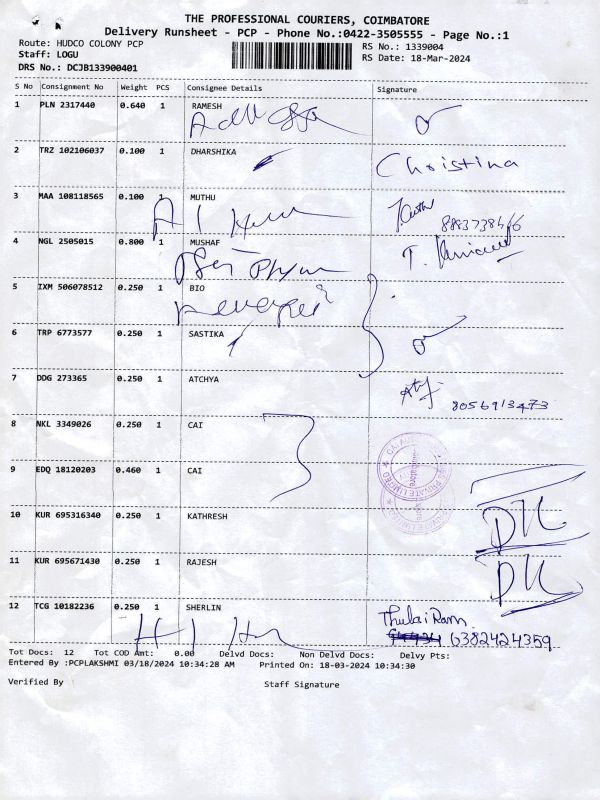 THE PROFESSIONAL COURIERS, COIMBATORE
Delivery Runsheet - PCP - Phone No.:0422-3505555 - Page No.:1
Route: HUDCO COLONY PCP
RS No.: 1339004
Staff: LOGU
RS Date: 18-Mar-2024
DRS No.: DCJB133900401
S No Consignment No Weight PCS Consignee Details Signature
1 PLN 2317440 0.640 1 RAMESH
2 TRZ 102106037 0.100 1 DHARSHIKA
Christina
3 MAA 108118565 0.100 1 MUTHU
4 NGL 2505015 0.800 1 MUSHAF
T.
5 IXM 506078512 0.250 1 BIO
6 TRP 6773577 0.250 1 SASTIKA
7 DDG 273365 0.250 1 ATCHYA
8056913473
8 NKL 3349026 0.250 1 CAI
9 EDQ 18120203 0.460 1 CAI
PRIVATE LIMITED
10 KUR 695316340 0.250 1 KATHRESH
11 KUR 695671430 0.250 1 RAJESH
12 TCG 10182236 0.250 1 SHERLIN
Thulai Ram
6382424359
Tot Docs: 12 Tot COD Amt: 0.00 Delvd Docs: Non Delvd Docs: Delvy Pts:
Entered By :PCPLAKSHMI 03/18/2024 10:34:28 AM Printed On: 18-03-2024 10:34:30
Verified By Staff Signature